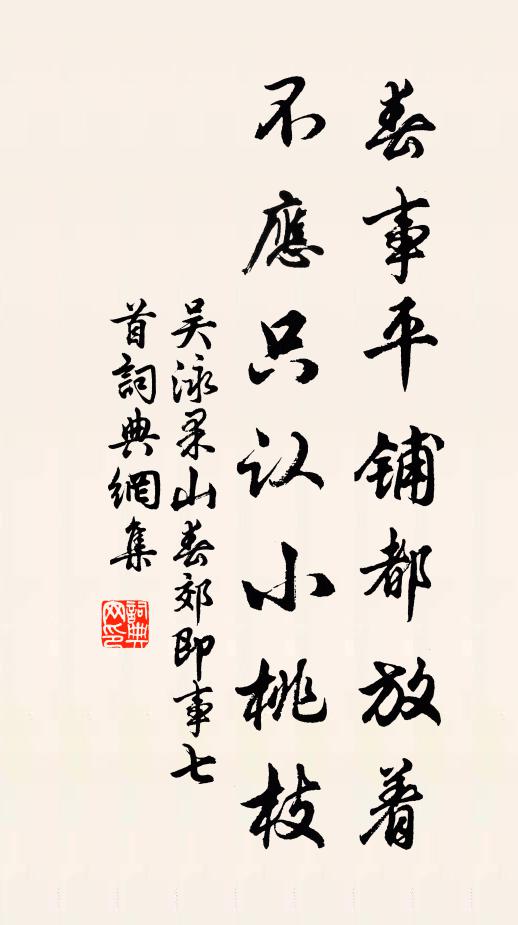 春事平鋪都放着
不應只认小桃枝
吳泳果山春郊即事七
首詞典網集
詞典网印